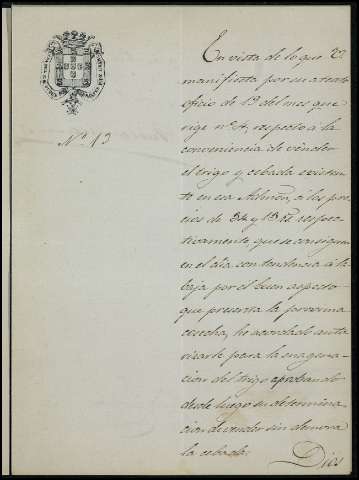 Nº 13
En vista de lo que V.
manifiesta por su atento
oficio de 13 del mes que
rige nº 4, respecto á la
conveniencia de vender
el trigo y cebada existen
te en esa Admón, á los pre
cios de 34 y 15 rs respec
tivamente, que se consiguen
en el dia, con tendencia á la
baja por el buen aspecto
que presenta la procsima
cosecha, he acordado auto
rizarle para la enagena
cion del trigo aprobando
desde luego su determina
cion de vender sin demora
la cebada.
Dios